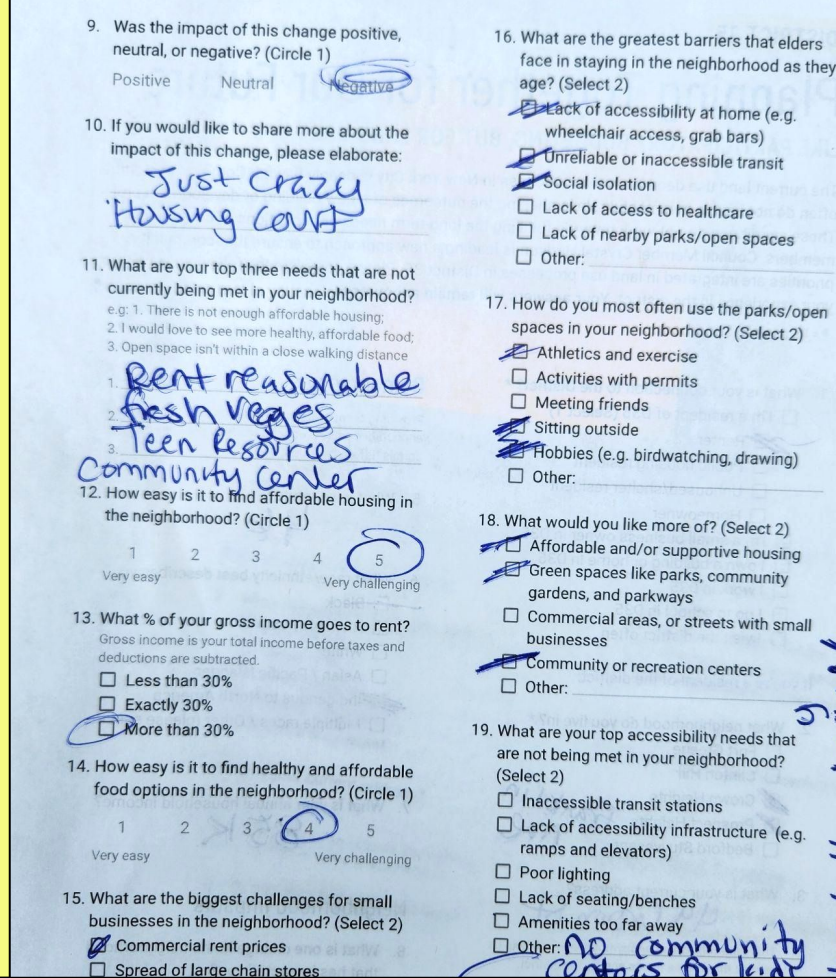 9. Was the impact of this change positive,
neutral, or negative? (Circle 1)
Positive Neutral Negative
10. If you would like to share more about the
impact of this change, please elaborate:
Just Crazy
Housing Court
11. What are your top three needs that are not
currently being met in your neighborhood?
e.g: 1. There is not enough affordable housing;
2. I would love to see more healthy, affordable food;
3. Open space isn't within a close walking distance
1. Rent reasonable
2. fresh veges
3. Teen Resources
Community Center
12. How easy is it to find affordable housing in
the neighborhood? (Circle 1)
1 2 3 4 5
Very easy Very challenging
13. What % of your gross income goes to rent?
Gross income is your total income before taxes and
deductions are subtracted.
Less than 30%
Exactly 30%
More than 30%
14. How easy is it to find healthy and affordable
food options in the neighborhood? (Circle 1)
1 2 3 4 5
Very easy Very challenging
15. What are the biggest challenges for small
businesses in the neighborhood? (Select 2)
Commercial rent prices
Spread of large chain stores
16. What are the greatest barriers that elders
face in staying in the neighborhood as they
age? (Select 2)
Lack of accessibility at home (e.g.
wheelchair access, grab bars)
Unreliable or inaccessible transit
Social isolation
Lack of access to healthcare
Lack of nearby parks/open spaces
Other:
17. How do you most often use the parks/open
spaces in your neighborhood? (Select 2)
Athletics and exercise
Activities with permits
Meeting friends
Sitting outside
Hobbies (e.g. birdwatching, drawing)
Other:
18. What would you like more of? (Select 2)
Affordable and/or supportive housing
Green spaces like parks, community
gardens, and parkways
Commercial areas, or streets with small
businesses
Community or recreation centers
Other:
19. What are your top accessibility needs that
are not being met in your neighborhood?
(Select 2)
Inaccessible transit stations
Lack of accessibility infrastructure (e.g.
ramps and elevators)
Poor lighting
Lack of seating/benches
Amenities too far away
Other: No community
centers for kids